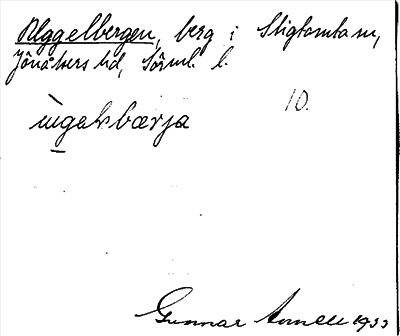 Uggelbergen, berg i Stigtomta sn,
Jönåkers hd, Sörml. l.
10.
Gunnar 1933